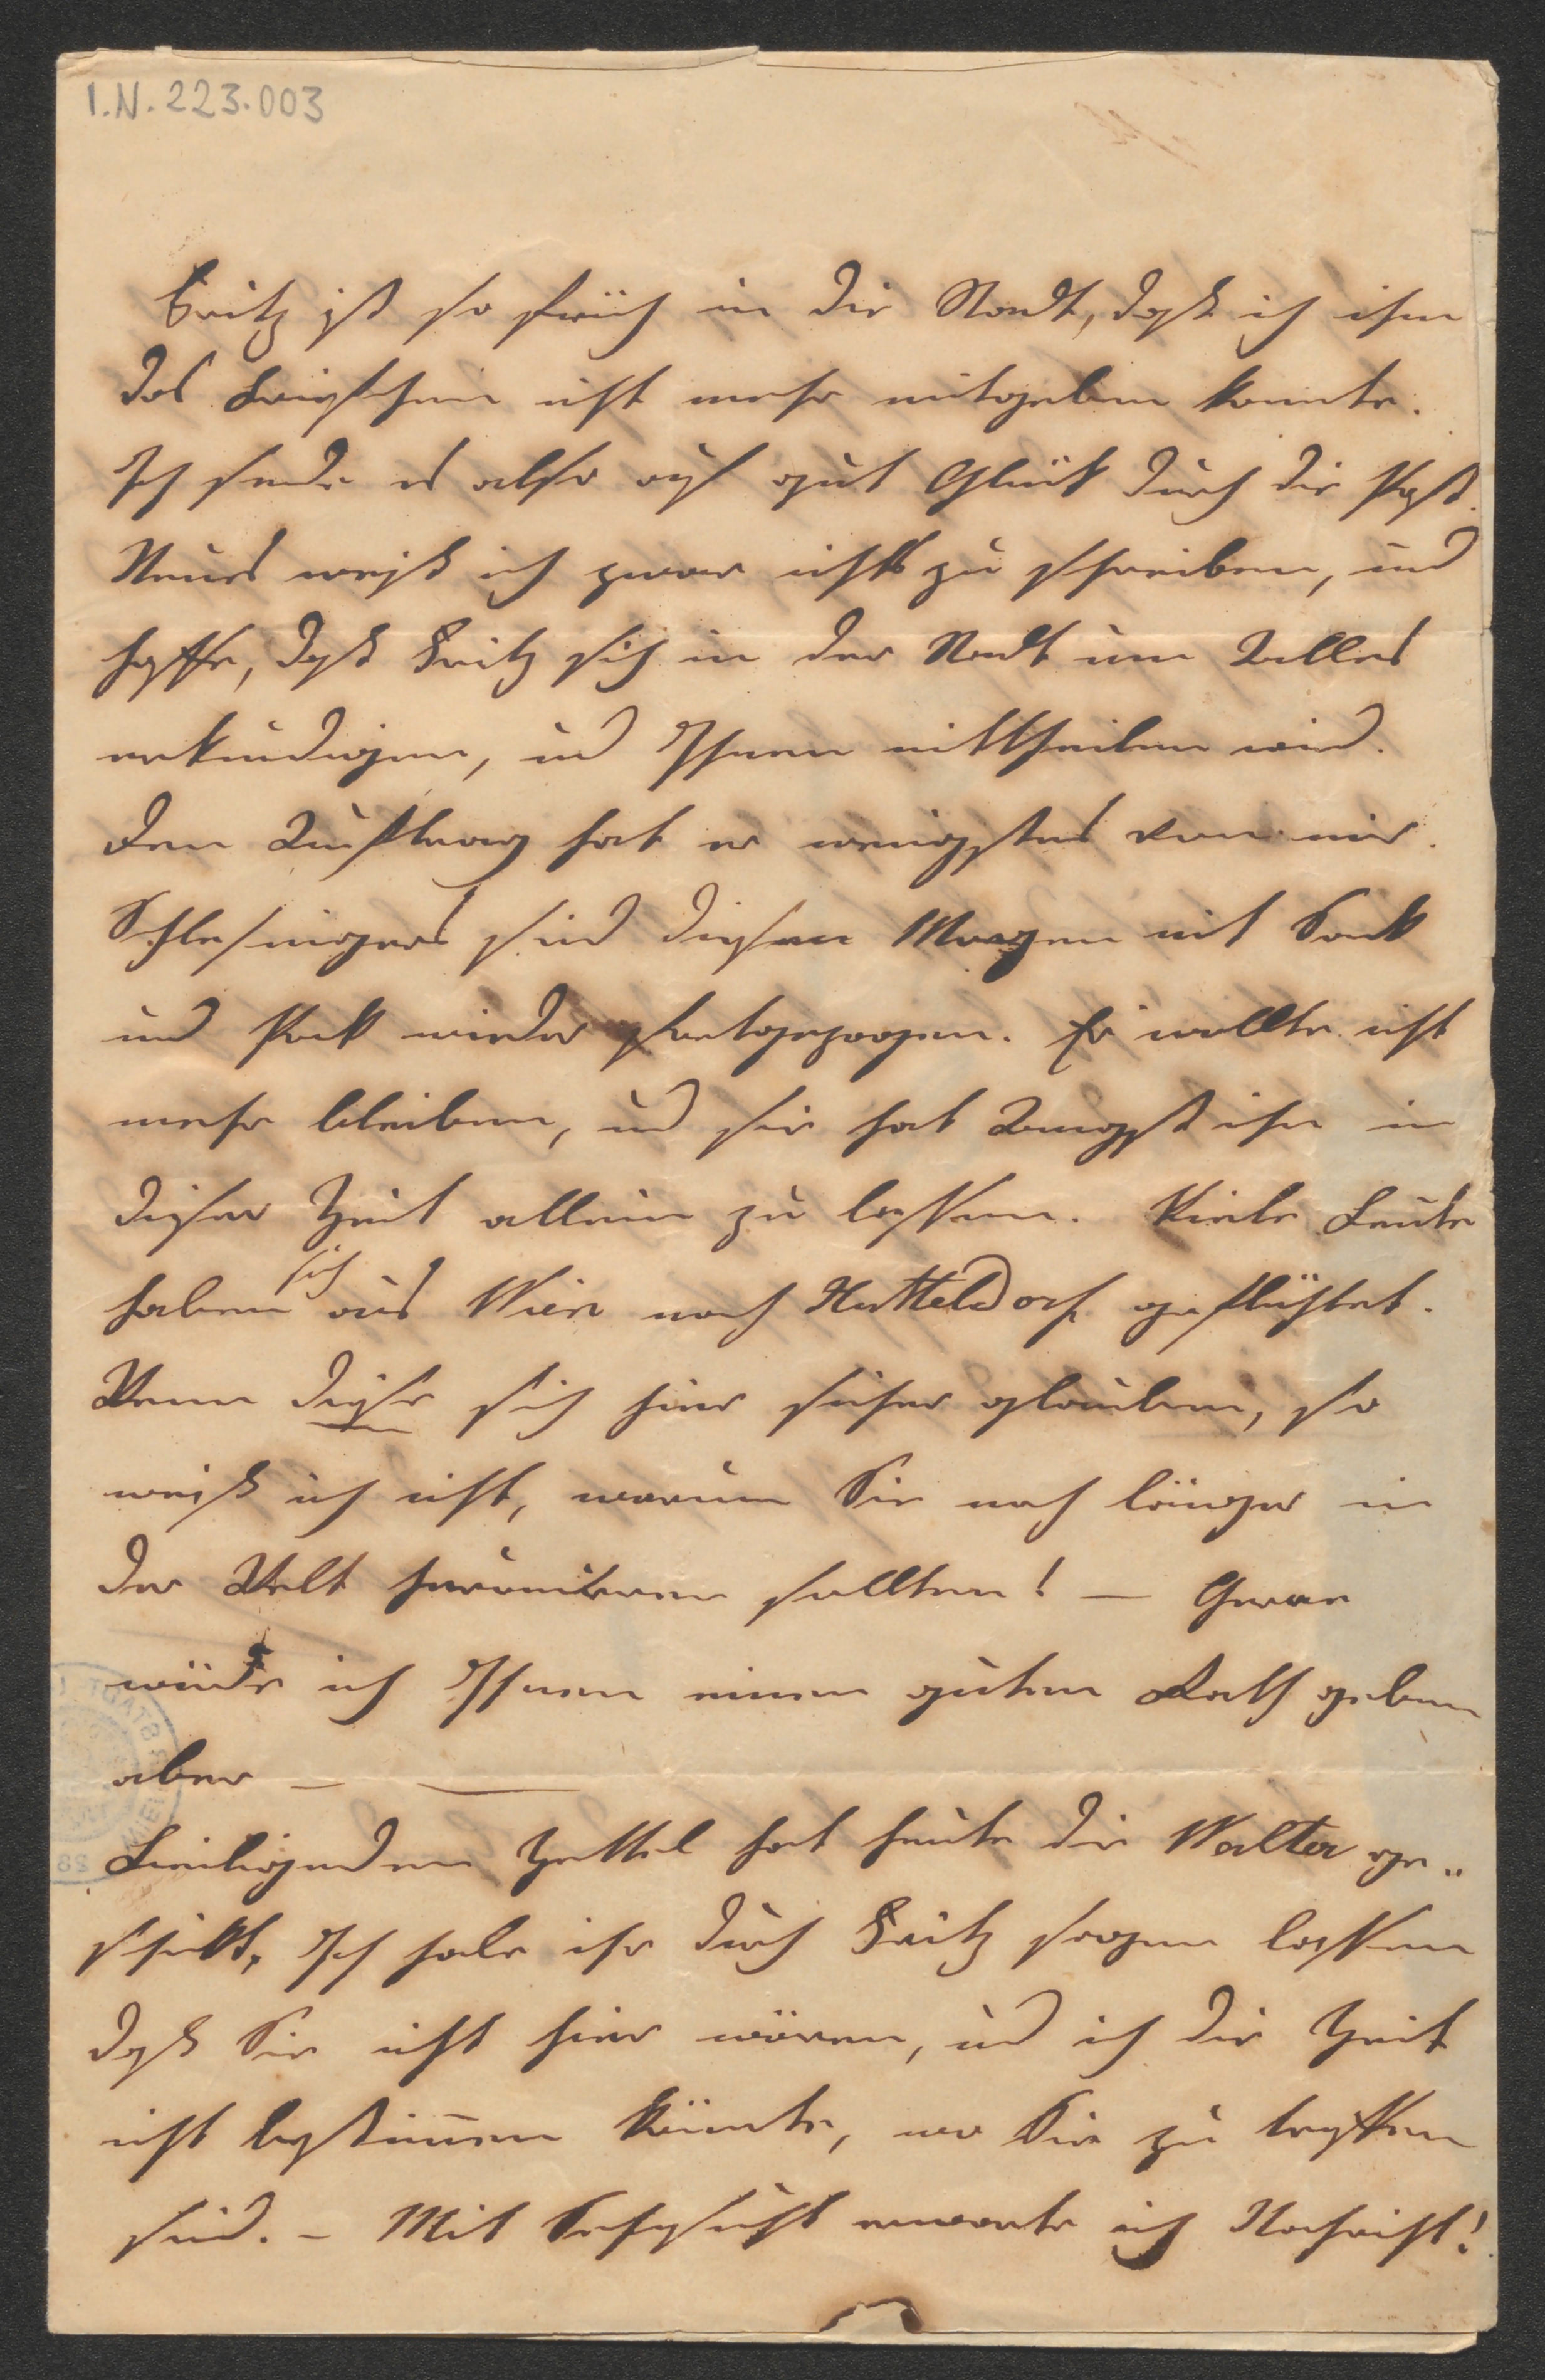 I.N. 223.003
Fritz ist so früh in die Stadt, daß ich ihm
das Briefchen nicht mehr mitgeben konnte.
Ich sende es also auf gut Glück durch die Post.
Neues weiß ich zwar nichts zu schreiben, und
hoffe, daß Fritz sich in der Stadt um Alles
erkundigen, und Ihnen mittheilen wird.
Den Auftrag hat er wenigstens von mir.
Schlesingers sind diesen Morgen mit Sack
und Pack wieder fortgezogen. Er wollte nicht
mehr bleiben, und sie hat Angst ihn in
dieser Zeit allein zu lassen. Viele Leute
haben sich aus Wien nach Hütteldorf geflüchtet.
Wenn diese sich hier sicher glauben, so
weiß ich nicht, warum Sie noch länger in
der Welt herumirren sollten! — Gerne
würde ich Ihnen einen guten Rath geben
aber — —
Beiligenden Zettel hat heute die Walter ge„
schickt, Ich habe ihr durch Fritz sagen lassen
daß Sie nicht hier wären, und ich die Zeit
nicht bestim̅en könnte, wo Sie zu treffen
sind. – Mit Sehnsucht erwarte ich Nachricht!